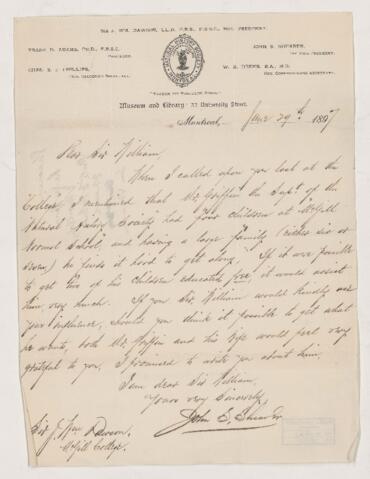 Sir J. Wm. Dawson, LL.D., F.R.S., F.R.S.C., Hon. President.
Frank D. Adams, Ph.D., F.R.S.C.
President.
John S. Shearer,
Vice President.
Natural History Society
Montreal
Museum and Library: 32 University Street.
Montreal, June 29th 1897
Dear Sir William,
When I called upon you last at the
College, I mentioned that Mr. Griffin the Supt. of the
Natural History Society had four children at McGill
Normal School, and having a large family (either six or
seven) he finds it hard to get along. If it were possible
to get two of his children educated free, it would assist
him very much. If you Sir William would kindly use
your influence, should you think it possible to get what
he wants, both Mr. Griffin and his wife would feel very
grateful to you. I promised to write you about him.
I am dear Sir William,
Yours very Sincerely,
John S. Shearer
Sir J. Wm. Dawson,
McGill College.